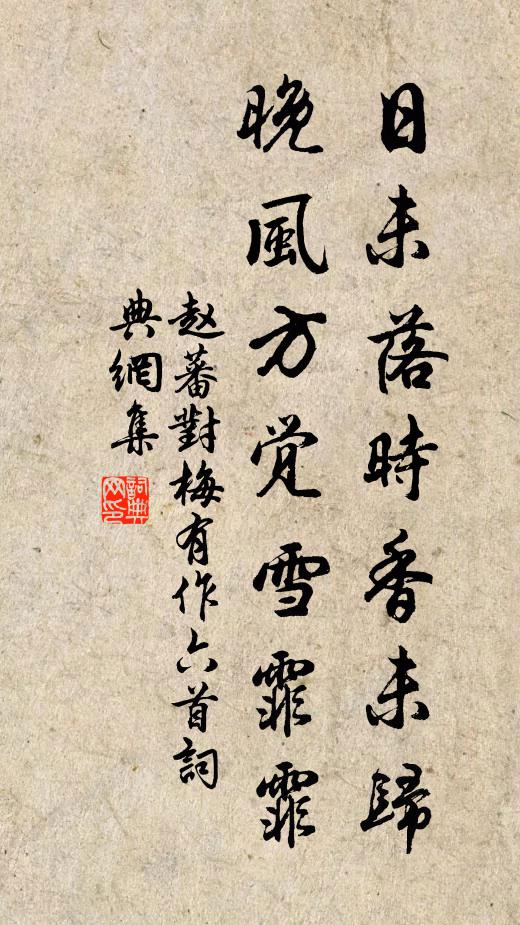 日未落時香未歸
晚風方覚雪霏霏
赵蕃對梅有作六首詞
典網集
詞典
网印